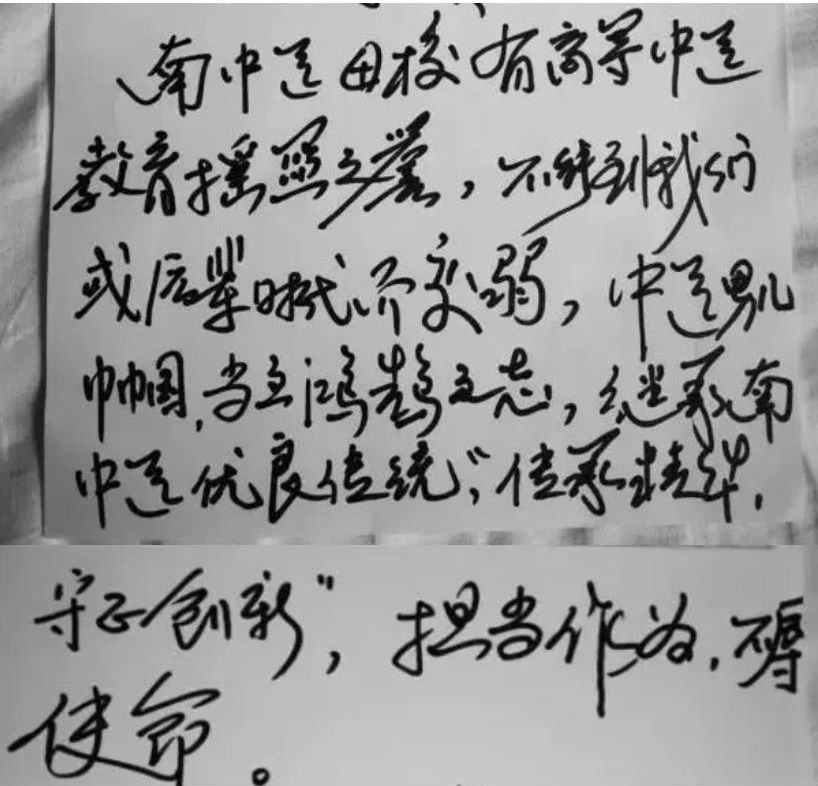 南中医母校有高等中医
教育摇篮之誉，不能到我们
或后辈时代而变弱，中医男儿
巾帼，当立鸿鹄之志，继承南
中医优良传统，“传承精华，
守正创新”，担当作为，不辱
使命。